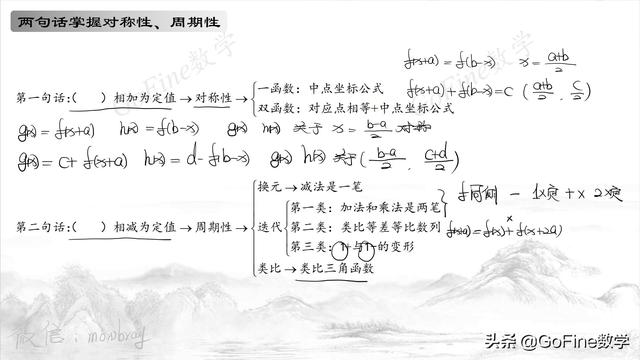 两句话掌握对称性、周期性
GoFine数学
f(x+a) = f(b-x) x = \frac{a+b}{2}
f(x+a)+f(b-x)=C (\frac{a+b}{2}, \frac{C}{2})
第一句话:( )相加为定值→对称性→
一函数:中点坐标公式
双函数:对应点相等+中点坐标公式
g(x) = f(x+a) h(x) = f(b-x) g(x) h(x) 关于 x = \frac{b-a}{2} 对称
g(x) = c+ f(x+a) h(x) = d-f(b-x) g(x) h(x) 关于 (\frac{b-a}{2}, \frac{c+d}{2})
第二句话:( )相减为定值→周期性→
换元→减法是一笔
迭代
第一类:加法和乘法是两笔
第二类:类比等差等比数列
第三类:1+与1-的变形
类比→类比三角函数
f(x+a)=f(x)+f(x+2a)
微信:
头条 @GoFine数学